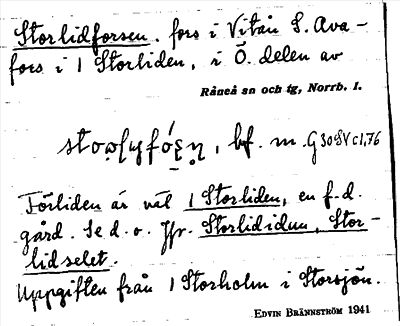 Storlidforsen. fors i Vitån S. Ava-
fors i 1 Storliden, i Ö. delen av
Råneå sn och tg, Norrb. l.
bf. m. G30SVc1,76
Förliden är väl 1 Storliden, en f.d.
gård. Se d.o. Jfr. Storlididun, Stor-
lidselet.
Uppgiften från 1 Storholm i Storsjön.
EDVIN BRÄNNSTRÖM 1941